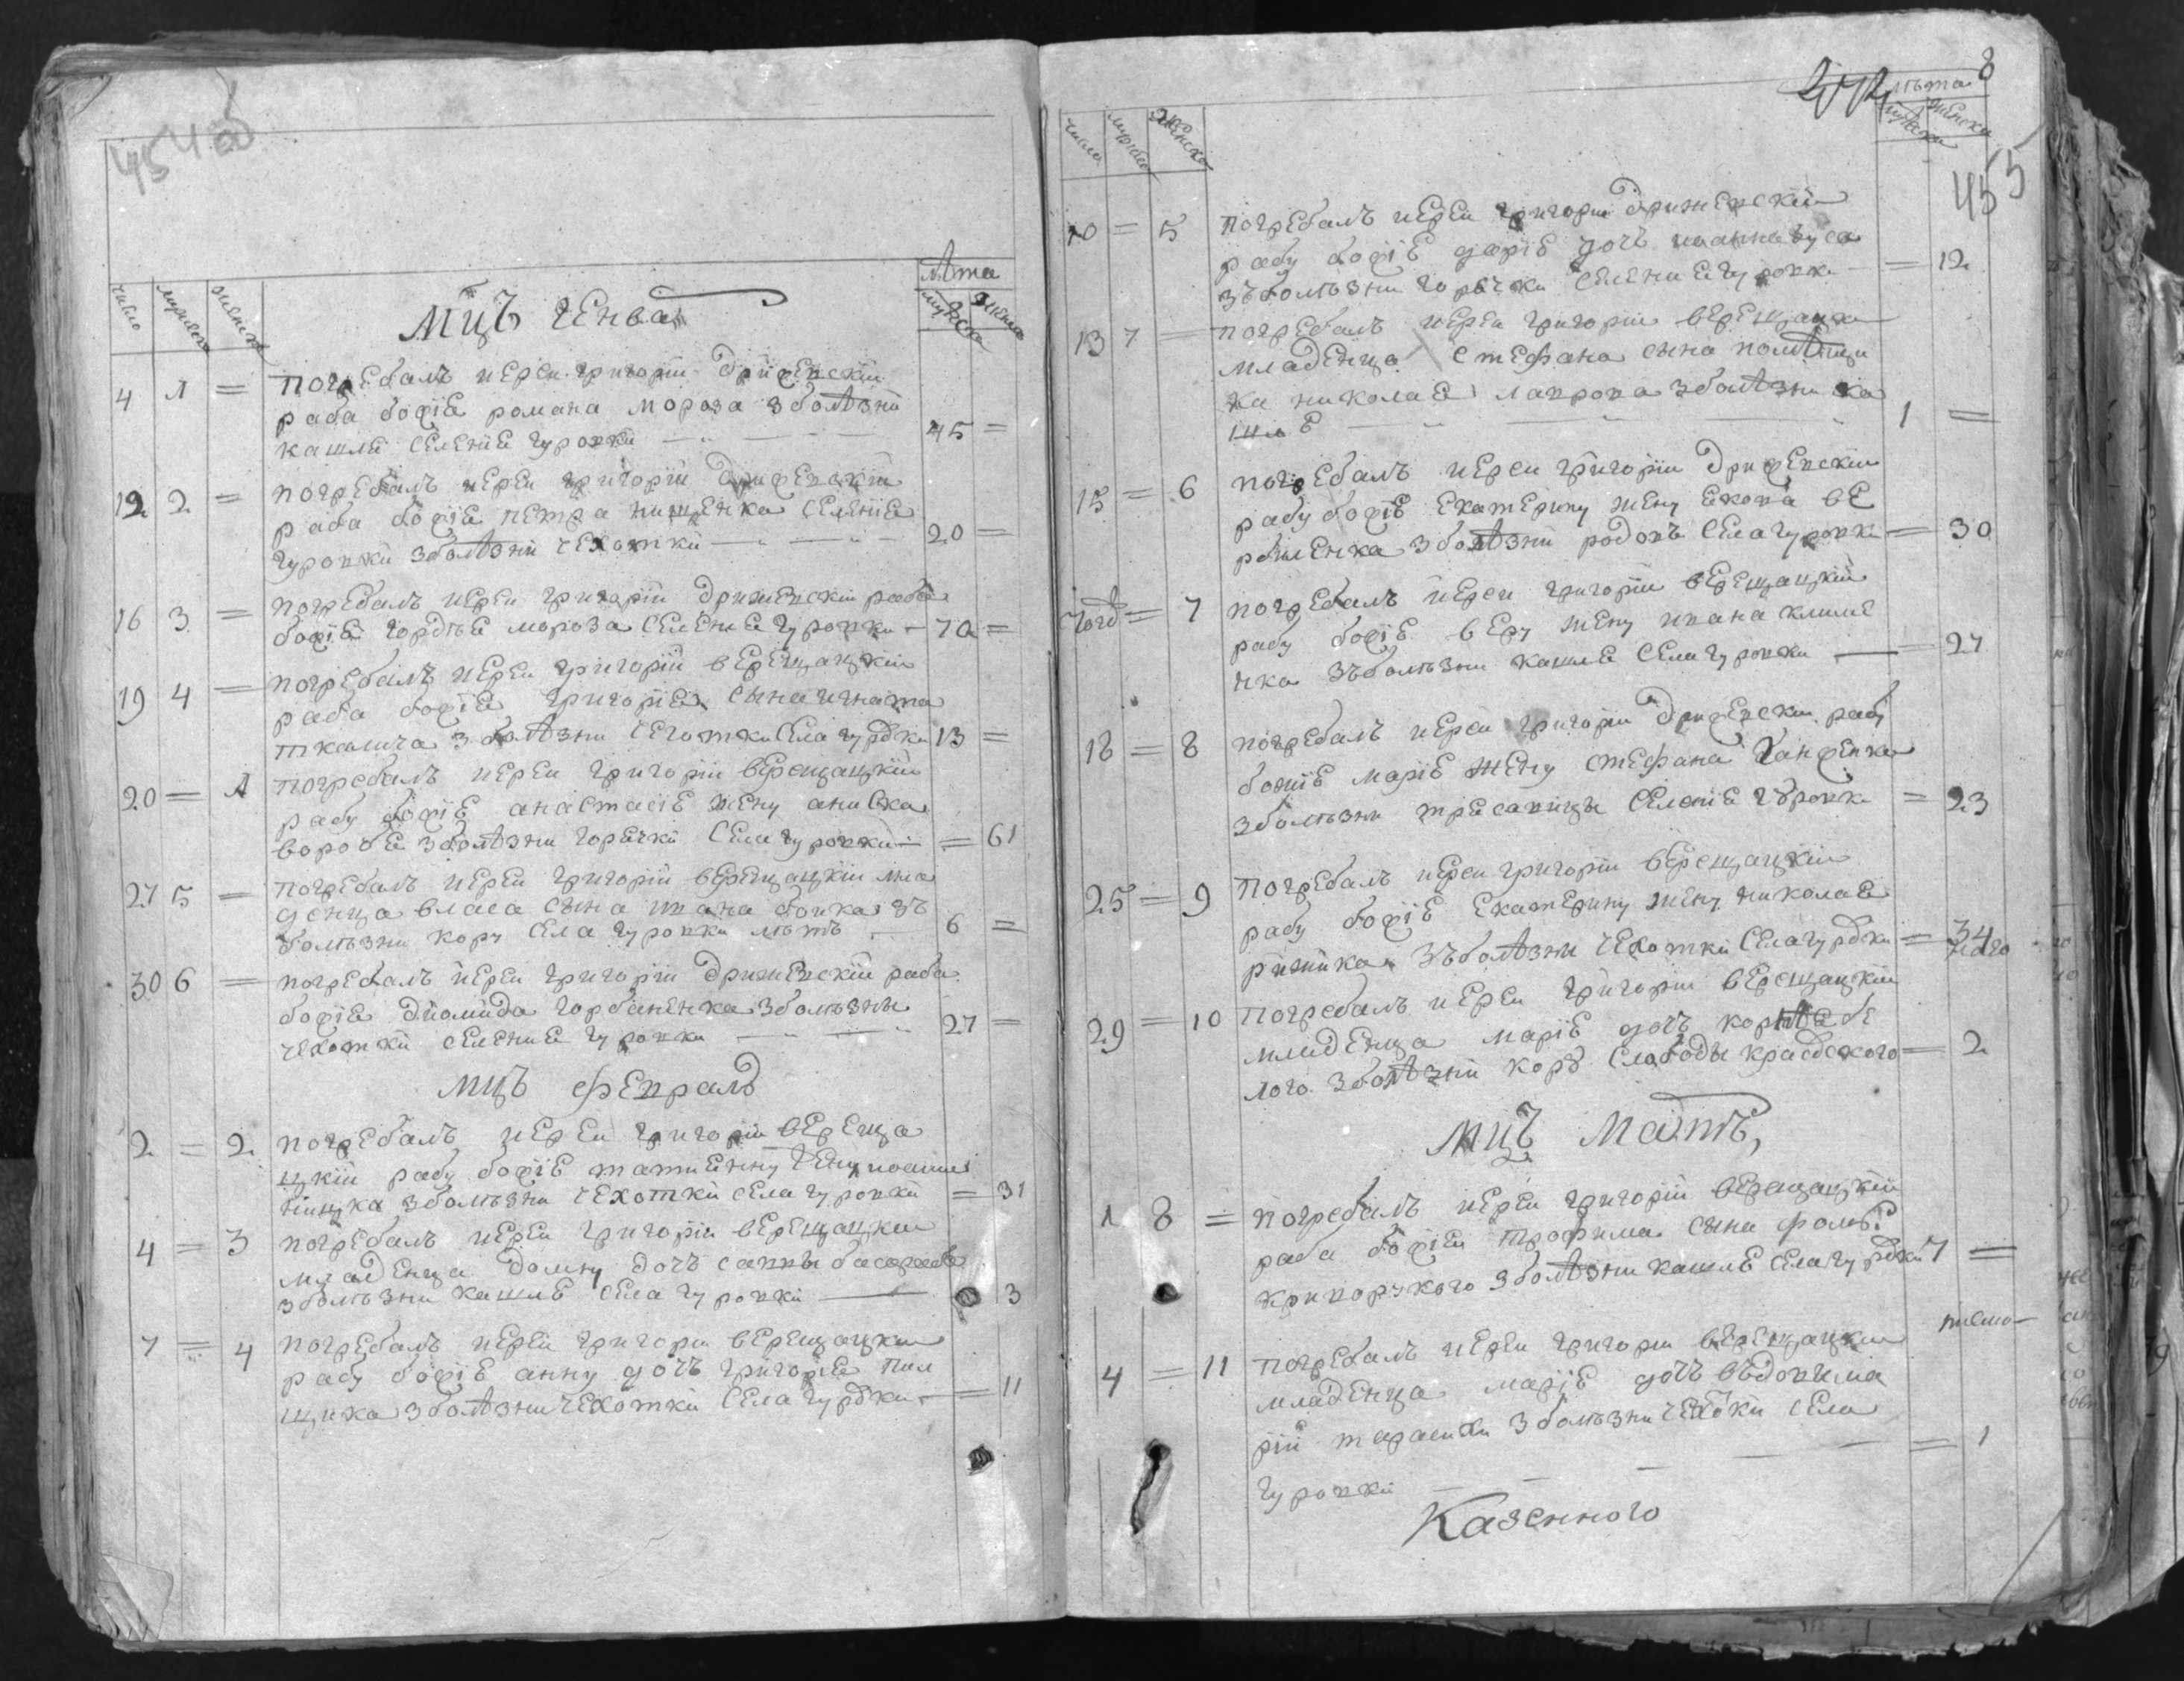 454об
лѣта
число мужеска женска
мужеска женска
Мцъ генвар
4 1 = погребалъ иереи григории дрижевскии
раба божіе романа мороза з болѣзни
кашлѣ селение гуровки 45 =
12 2 = погребалъ иереи григории дрижевскии
раба божіе петра селение
гуровки з болѣзни чехотки 20 =
16 3 = погребалъ иереи григории дрижевскии раба
божіе гордѣе мороза селение гуровки 70 =
19 4 = погребалъ иереи григории верещацкии
раба божіе григорие сына игната
ткалича з болѣзни чеготки села гуровки 13 =
20 = 1 погребалъ иереи григории верещацкии
рабу божіе анастасіе жену
воробе з болѣзни горечки села гуровки = 61
27 5 = погребалъ иереи григории верещацкии мла
денца власа сына ивана бойка зъ
болѣзни кору села гуровки лѣтъ 6 =
30 6 = погребалъ иереи григории дрижевскии раба
божіе диомида горбаненка з болѣзни
чехотки селение гуровки 27 =
мцъ февраль
2 = 2 погребалъ иереи григории вереща
цкии рабу божіе татиенну жену
з болѣзни чехотки села гуровки = 31
4 = 3 погребалъ иереи григории верещацкии
младенца домну дочъ саввы
з болѣзни кашле села гуровки 3
7 = 4 погребалъ иереи григории верещацкии
рабу божіе анну дочъ григорие пили
щика з болѣзни чехотки села гуровки = 11
8
лѣта
числа мужеска женска
мужеска женска
455
10 = 5 погребалъ иереи григории дрижевскии
рабу божіе дарие дочъ
зъ болѣзни горечки селение гуровки = 12
13 7 = погребалъ иереи григории верещацки
младенца стефана сына помѣщи
ка николае лаврова з болѣзни ка
шлѣ 1 =
15 = 6 погребалъ иереи григории дрижевскии
рабу божіе екатерину жену
з болѣзни родовъ села гуровки = 30
= 7 погребалъ иереи григории верещацкии
рабу божіе веру жену ивана климе
нка зъ болѣзни кашле села гуровки = 27
18 = 8 погребалъ иереи григории дрижевски рабу
божіе марие жену стефана
з болѣзни тресавицы селение гуровки = 23
25 = 9 погребалъ иереи григории верещацкии
рабу божіе екатерину жену николае
рижика зъ болѣзни чехотки села гуровки = 34
29 = 10 погребалъ иереи григории верещацкии
младенца марие дочъ корнѣе бе
лого з болѣзни кору слободы = 2
мцъ мартъ,
1 8 = погребалъ иереи григории верещацкии
раба божіи трофима сына фомы
криворукого з болѣзни кашле села гуровки 7 =
4 = 11 погребалъ иереи григории верещацкии
младенца марие дочъ
з болѣзни чехотки села
гуровки = 1
Казенного